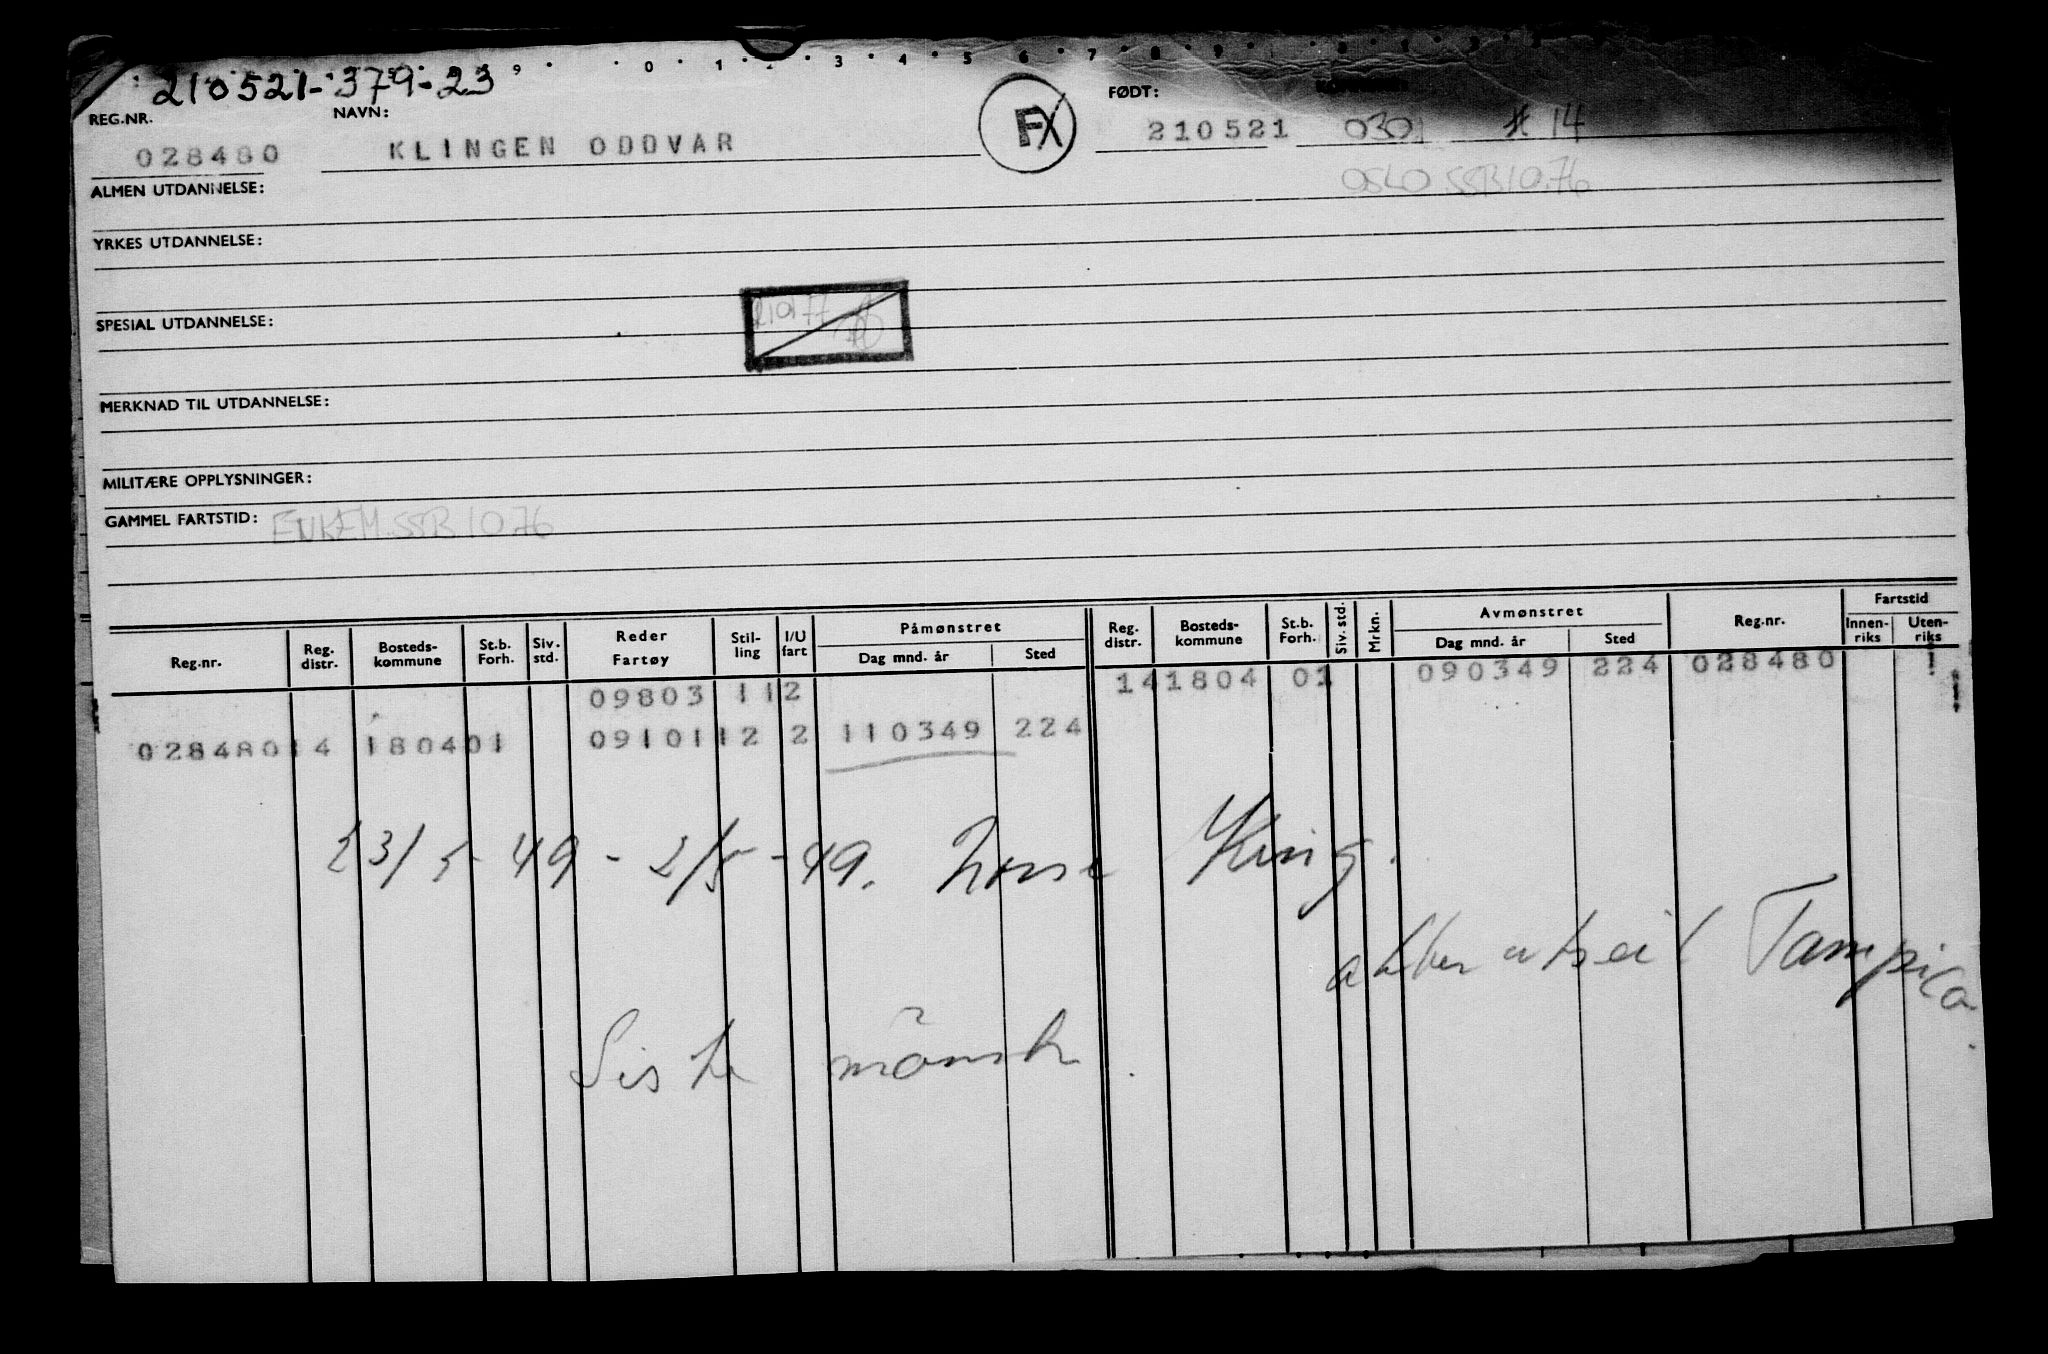 210521-379-23
REG.NR. NAVN: FØDT:
028480 KLINGEN ODDVAR FX 210521 0301 14
OSLO SSB 10.76
ALMEN UTDANNELSE:
YRKES UTDANNELSE:
SPESIAL UTDANNELSE:
MERKNAD TIL UTDANNELSE:
MILITÆRE OPPLYSNINGER:
GAMMEL FARTSTID: ENKEM.SSB 10.76
Reg.nr. Reg. distr. Bosteds-kommune St.b. Forh. Siv. std. Reder Fartøy Stil-ling I/U fart Påmønstret Dag mnd. år Sted Reg. distr. Bosteds-kommune St.b. Forh. Siv. std. Mrkn. Avmønstret Dag mnd. år Sted Reg.nr. Fartstid Innen-riks Uten-riks
09803 11 2 14 1804 01 090349 224 028480
028480 14 1804 01 09101 12 2 110349 224
23/5-49 - 2/5-49. Norse King.
akterutseilt Tampico.
Siste mønstr.